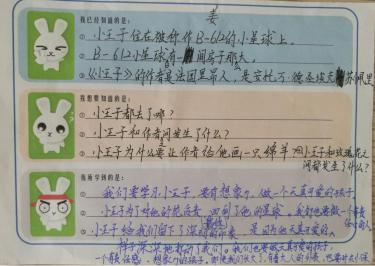 姜
我已经知道的是:
① 小王子住在被称作B-612的小星球上。
② B-612小星球有一间房子那大。
③ 《小王子》的作者是法国里昂人,是安托万·德·圣埃克苏佩里
我想要知道的是:
① 小王子都去了哪?
② 小王子和作者间发生了什么?
③ 小王子为什么要让作者给他画一只绵羊?小王子和玫瑰花之
间都发生了什么?
我所学到的是:
① 我们要学习小王子,要有想象力,做一个天真可爱的孩子
② 小王子为了对他的花负责,回到了他的星球。我们也要做一个有责
任心的人
③ 小王子给我们留下了深刻的印象,是可为他天真可爱的
样子深深地打动了我们。我们也要做天真可爱的
一个有责任感、想象力的孩子。即使我们长大了,有着大人的外表,也要